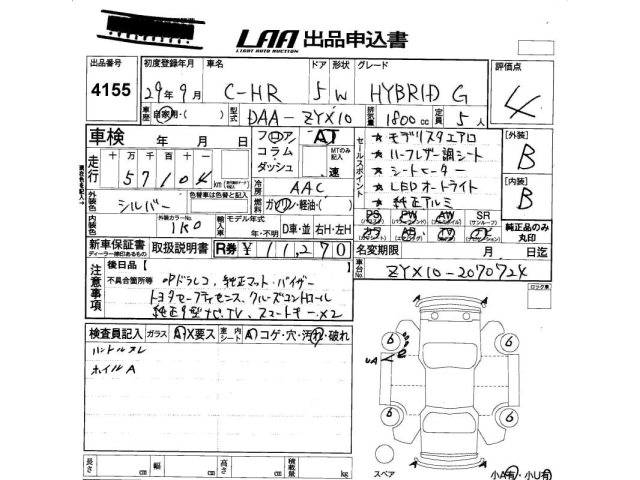 LAA 出品申込書
LIGHT AUTO AUCTION
出品番号 初度登録年月 車名 ドア 形状 グレード 評価点
4155 29年9月 C-HR 5 W HYBRID G 4
車歴 自家用・( ) 型式 DAA-ZYX10 排気量 1800cc 定員 5人
車検 年 月 日 フロア/コラム・ダッシュ AT MTのみ記入 速
走行 十万千百十 57104 km
セールスポイント
★モデリスタエアロ
★ハーフレザー調シート
★シートヒーター
★LEDオートライト
★純正アルミ
[外装] B
[内装] B
冷房 AAC
燃料 ガソリン・軽油・( )
外装色 シルバー 色替車は色替と記入
内装色 外装カラーNo. 1K0 輸入車 モデル年式 年・不明 D車・並 右H・左H
PS PW AW SR
カワ AB TV ナビ
純正品のみ丸印
新車保証書 取扱説明書 R券 ¥11,270 名変期限 月 日迄
ディーラー捺印あるもの
後日品【 】 車台No. ZYX10-2070724
ロック車
注意事項 不具合箇所等
トヨタセーフティセンス、クルーズコントロール
純正9型ナビTV、スマートキーX2
検査員記入 ガラス A・X要ス 室内シート A コゲ・穴・汚れ・破れ
ハンドルスレ
ホイルA
A A
6 6
UA
6 6
スペア
小A有・小U有
長さ cm 幅 cm 高さ cm 積載量 kg